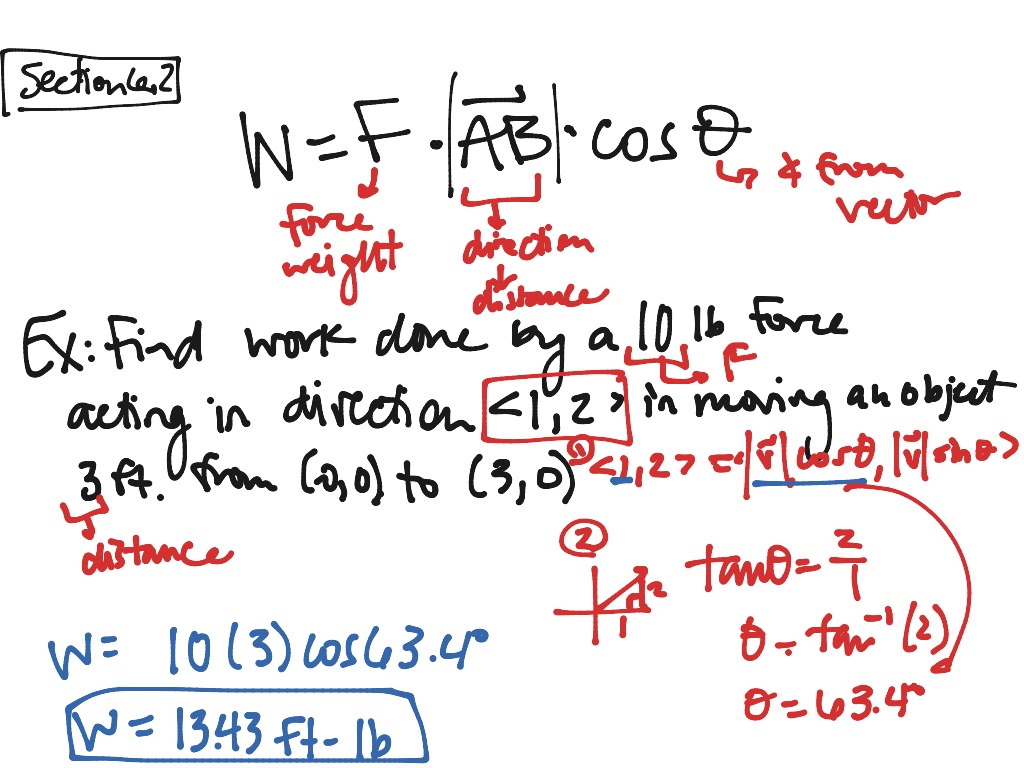 Section 6.2
W = F · |AB| · cos θ
↳ ∡ from vector
force weight
direction
distance
Ex: Find work done by a 10 lb force
→ F
acting in direction <1, 2> in moving an object
3 ft. from (0,0) to (3,0)
① <1, 2> = |v| cosθ, |v| sinθ>
distance
②
2
1
tanθ = 2/1
θ = tan⁻¹(2)
θ = 63.4°
W = 10(3) cos 63.4°
W = 13.43 ft-lb